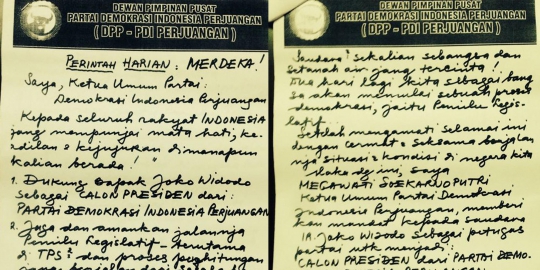 DEWAN PIMPINAN PUSAT
PARTAI DEMOKRASI INDONESIA PERJUANGAN
( DPP - PDI PERJUANGAN )
PERINTAH HARIAN : MERDEKA !
Saya, Ketua Umum Partai
Demokrasi Indonesia Perjuangan
Kepada seluruh rakyat INDONESIA
yang mempunyai mata hati, ke-
adilan & kejujuran dimanapun
kalian berada !
1. Dukung Bapak Joko Widodo
Sebagai CALON PRESIDEN dari
PARTAI DEMOKRASI INDONESIA PERJUANGAN
2. Jaga dan amankan jalannya
Pemilu Legislatif - terutama
di TPS2 dan proses penghitungan
DEWAN PIMPINAN PUSAT
PARTAI DEMOKRASI INDONESIA PERJUANGAN
( DPP - PDI PERJUANGAN )
Saudara2 sekalian sebangsa dan
setanah air yang tercinta !
hari lagi kita sebagai bang
sa akan memulai sebuah proses
demokrasi, jaitu Pemilu Legis-
latif.
Setelah mengamati selama ini
dengan cermat & seksama berjalan
nya situasi & kondisi di negara kita
ini, saya
MEGAWATI SOEKARNOPUTRI
Ketua Umum Partai Demokrasi
Indonesia Perjuangan, memberi
kan mandat kepada saudara
IR Joko Widodo Sebagai petugas
partai utk menjadi :
CALON PRESIDEN dari PARTAI DEMO-